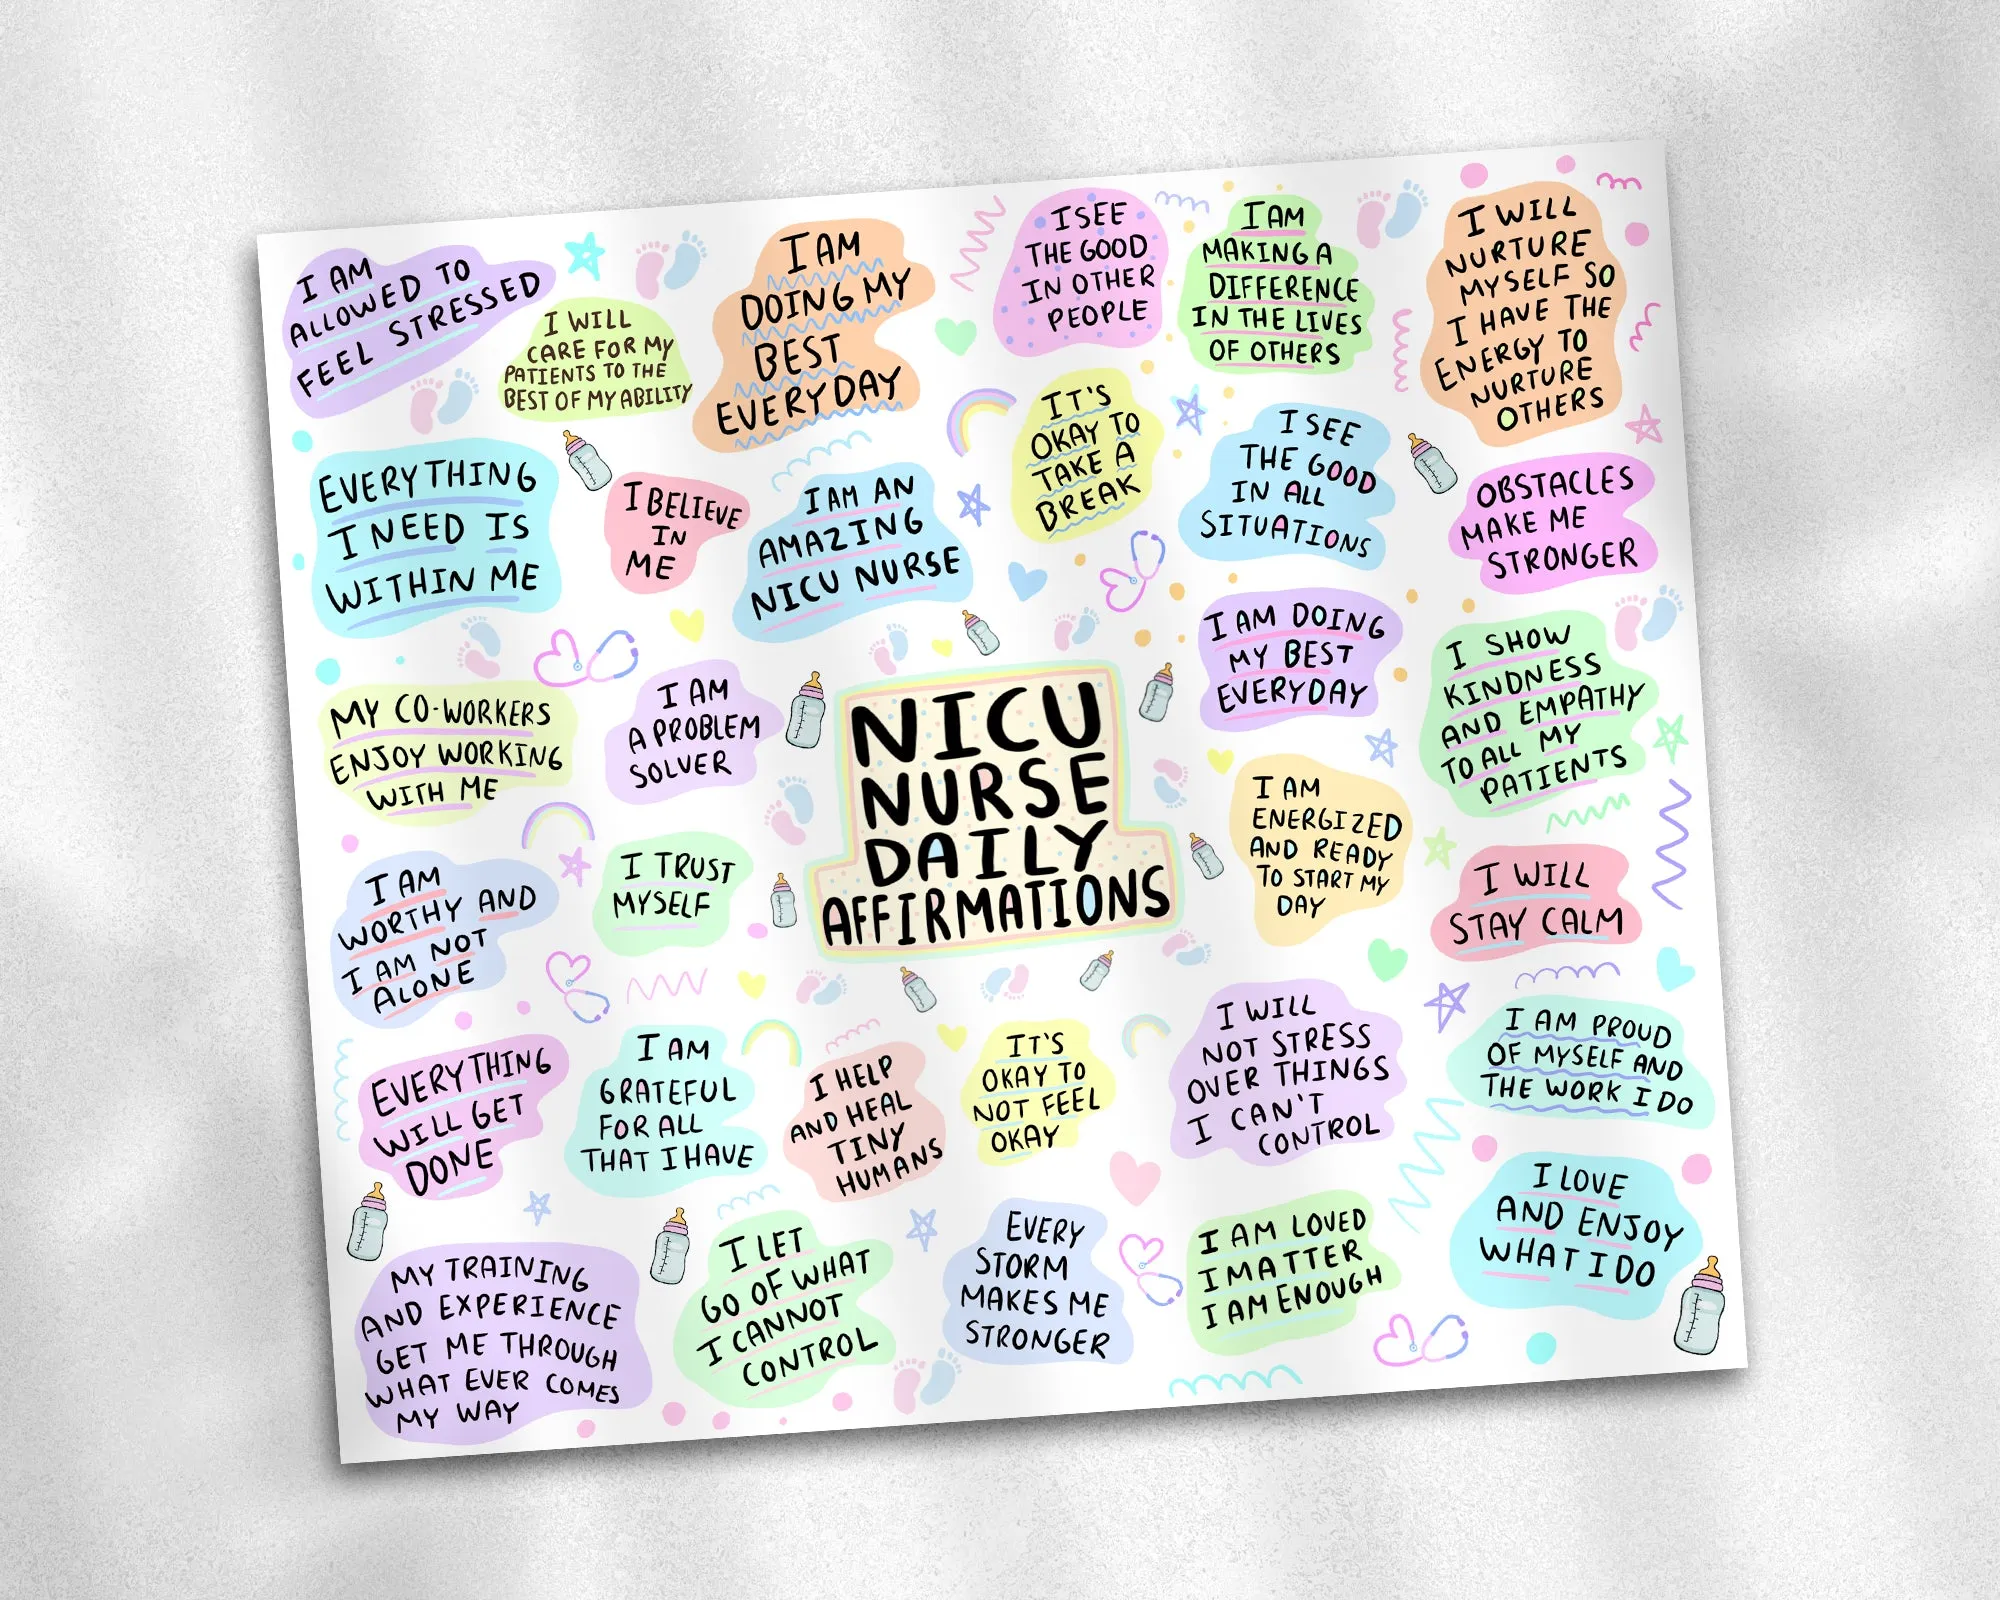 I AM
ALLOWED TO
FEEL STRESSED
I WILL
CARE FOR MY
PATIENTS TO THE
BEST OF MY ABILITY
I AM
DOING MY
BEST
EVERYDAY
I SEE
THE GOOD
IN OTHER
PEOPLE
I AM
MAKING A
DIFFERENCE
IN THE LIVES
OF OTHERS
I WILL
NURTURE
MYSELF SO
I HAVE THE
ENERGY TO
NURTURE
OTHERS
EVERYTHING
I NEED IS
WITHIN ME
I BELIEVE
IN
ME
I AM AN
AMAZING
NICU NURSE
IT'S
OKAY TO
TAKE A
BREAK
I SEE
THE GOOD
IN ALL
SITUATIONS
OBSTACLES
MAKE ME
STRONGER
MY CO-WORKERS
ENJOY WORKING
WITH ME
I AM
A PROBLEM
SOLVER
NICU
NURSE
DAILY
AFFIRMATIONS
I AM DOING
MY BEST
EVERYDAY
I SHOW
KINDNESS
AND EMPATHY
TO ALL MY
PATIENTS
I AM
WORTHY AND
I AM NOT
ALONE
I TRUST
MYSELF
I AM
ENERGIZED
AND READY
TO START MY
DAY
I WILL
STAY CALM
EVERYTHING
WILL GET
DONE
I AM
GRATEFUL
FOR ALL
THAT I HAVE
I HELP
AND HEAL
TINY
HUMANS
IT'S
OKAY TO
NOT FEEL
OKAY
I WILL
NOT STRESS
OVER THINGS
I CAN'T
CONTROL
I AM PROUD
OF MYSELF AND
THE WORK I DO
MY TRAINING
AND EXPERIENCE
GET ME THROUGH
WHAT EVER COMES
MY WAY
I LET
GO OF WHAT
I CANNOT
CONTROL
EVERY
STORM
MAKES ME
STRONGER
I AM LOVED
I MATTER
I AM ENOUGH
I LOVE
AND ENJOY
WHAT I DO